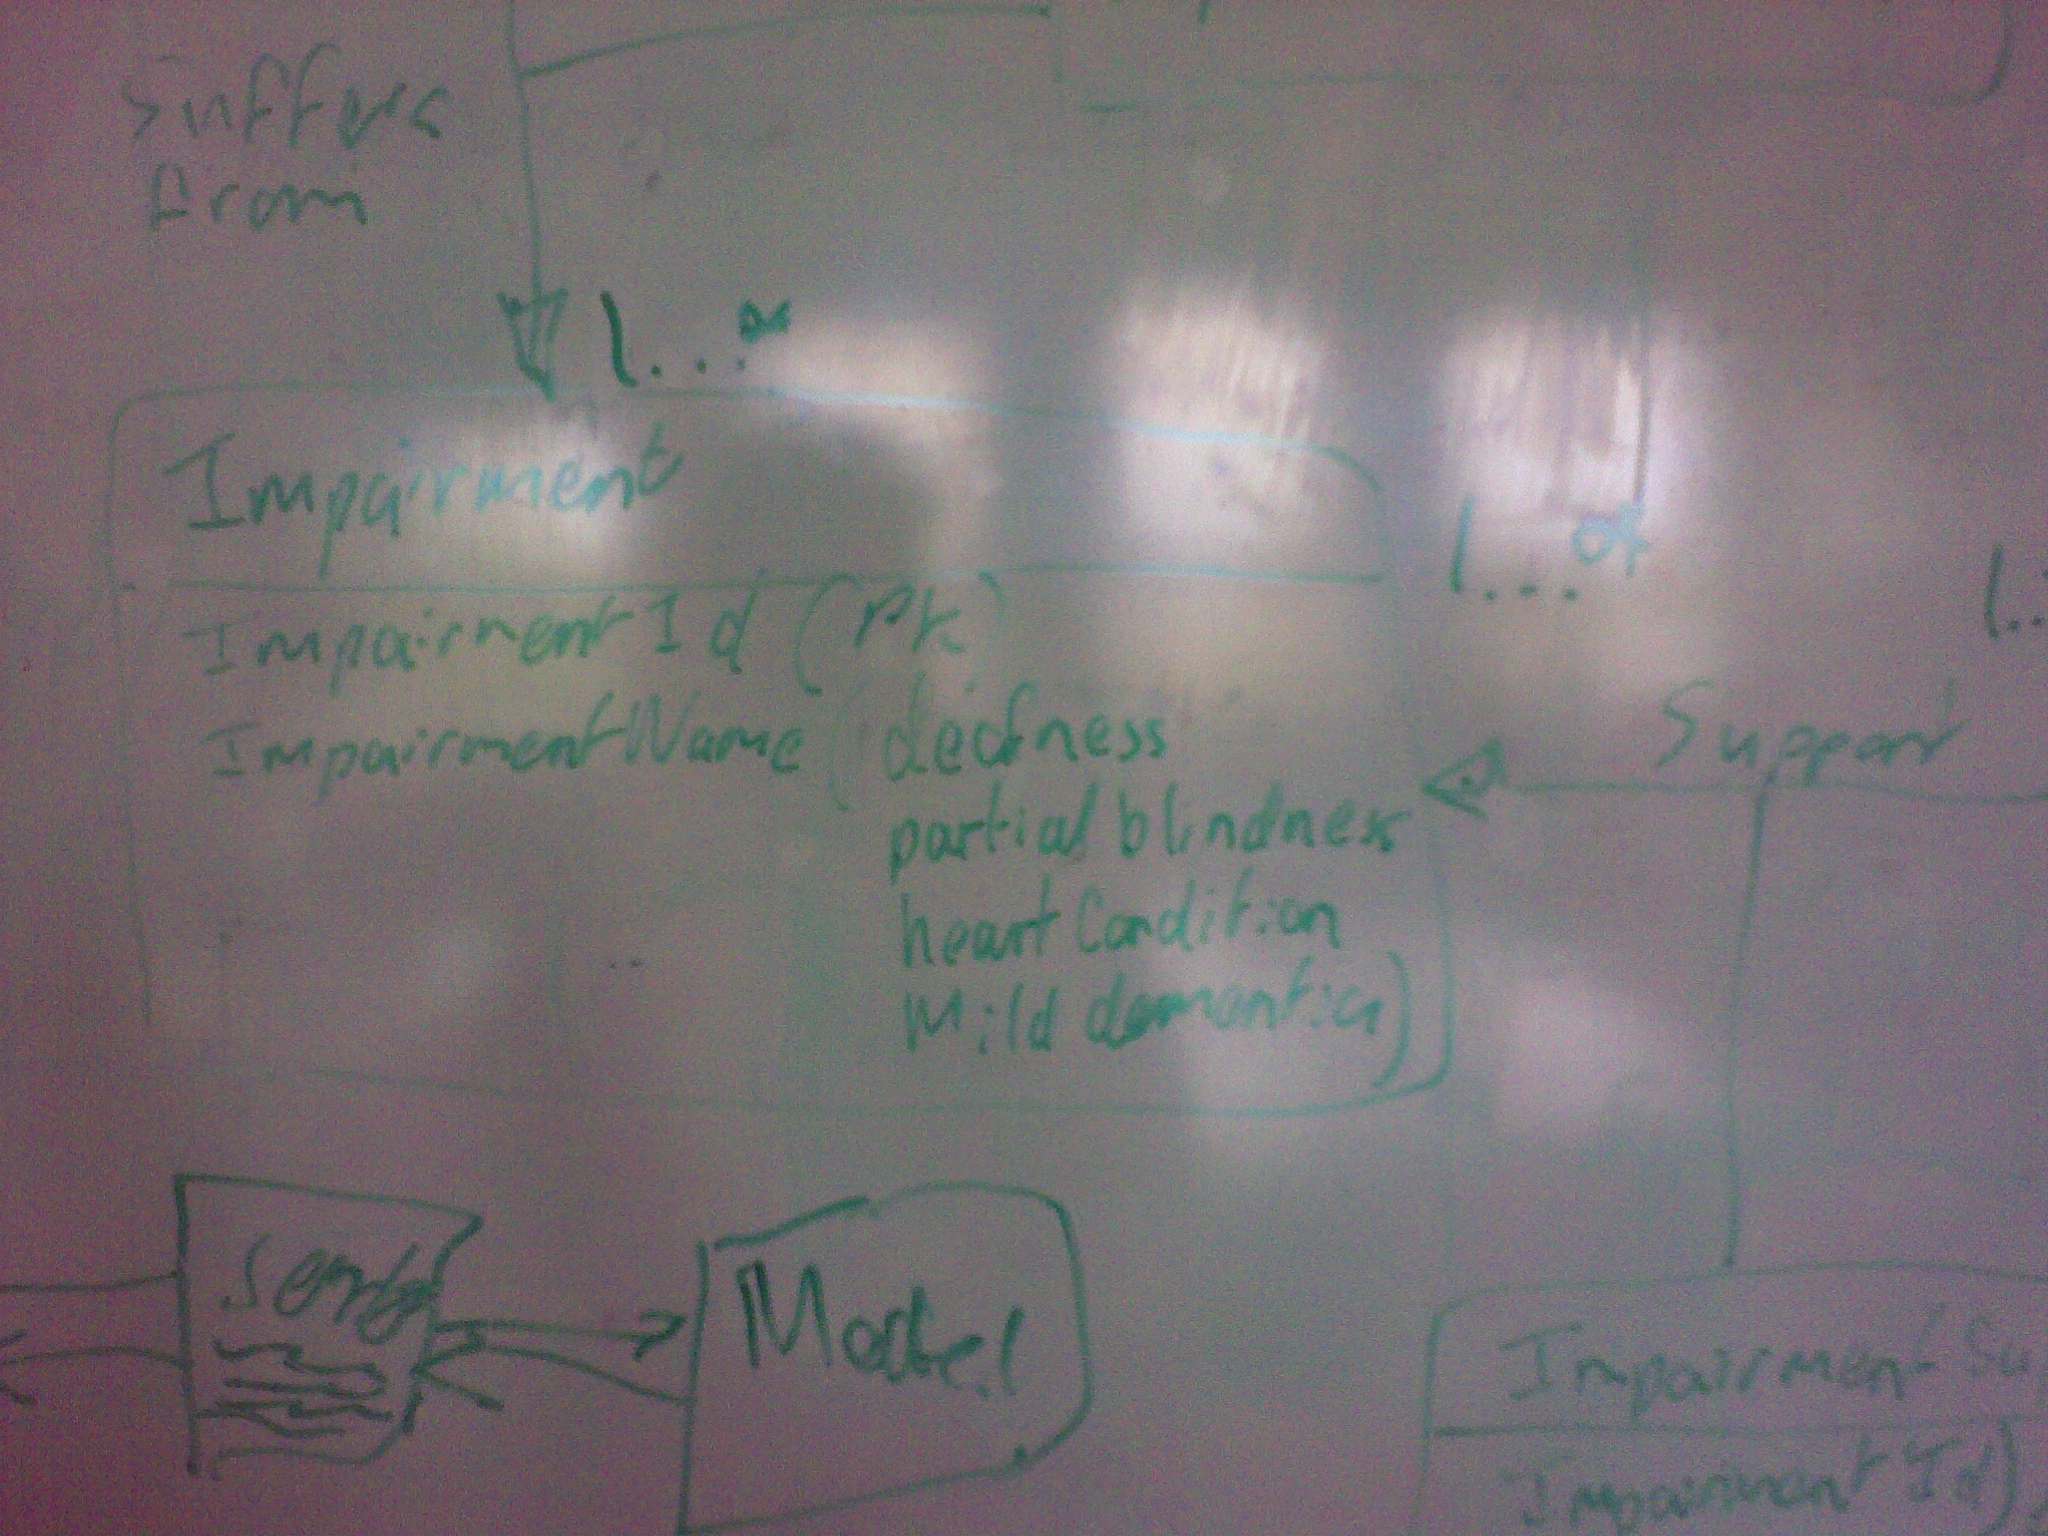 Suffers
from
1...*
Impairment
1...*
1..
ImpairmentId (PK)
ImpairmentName (deafness
Support
partial blindness
heart Condition
Mild dementia)
Model
Impairment Sup
Impairment Id)